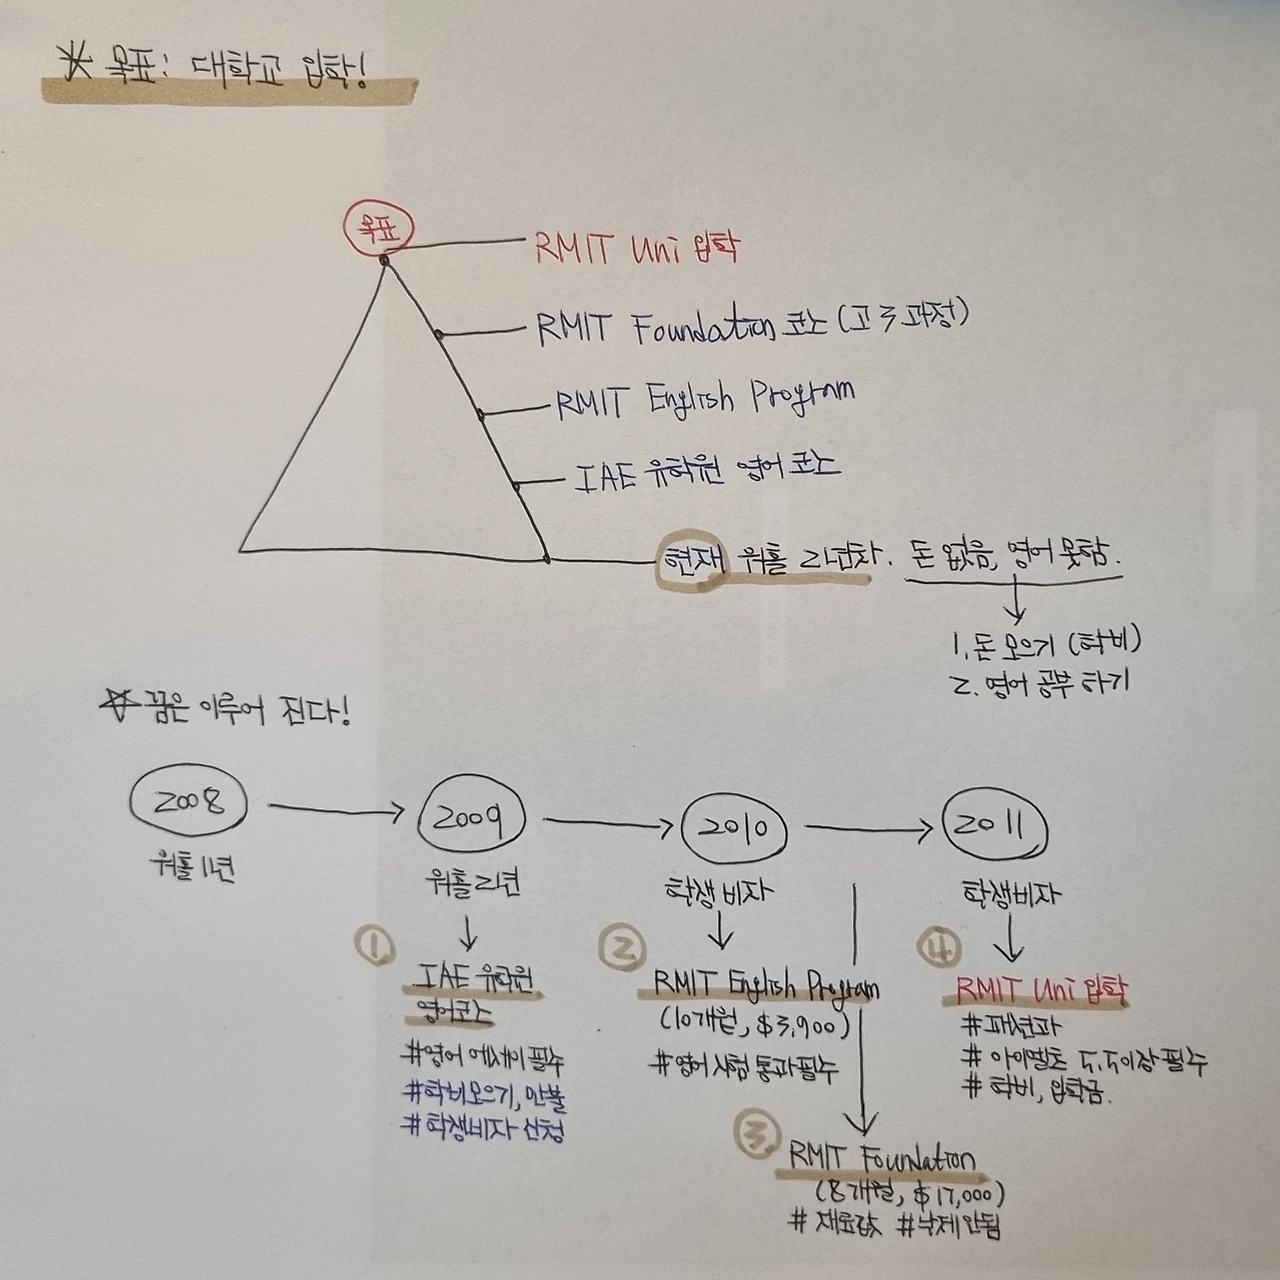 * 목표: 대학교 입학!
목표
RMIT Uni 입학
RMIT Foundation 코스 (고3과정)
RMIT English Program
IAE 유학원 영어코스
현재 워홀 2년차. 돈 없음, 영어 못함.
1. 돈 모으기 (학비)
2. 영어 공부 하기
☆ 꿈은 이루어 진다!
2008
2009
2010
2011
워홀 1년
워홀 2년
학생비자
학생비자
①
IAE 유학원
영어코스
#영어 에세이 필수
#학비모으기, 만불
#학생비자 신청
②
RMIT English Program
(10개월, $3,900)
#영어 시험 통과 필수
③
RMIT Foundation
(8개월, $17,000)
# 재료값 #낙제안됨
④
RMIT Uni 입학
#패션과
# 아이엘츠 5.5이상 필수
# 학비, 입학금.